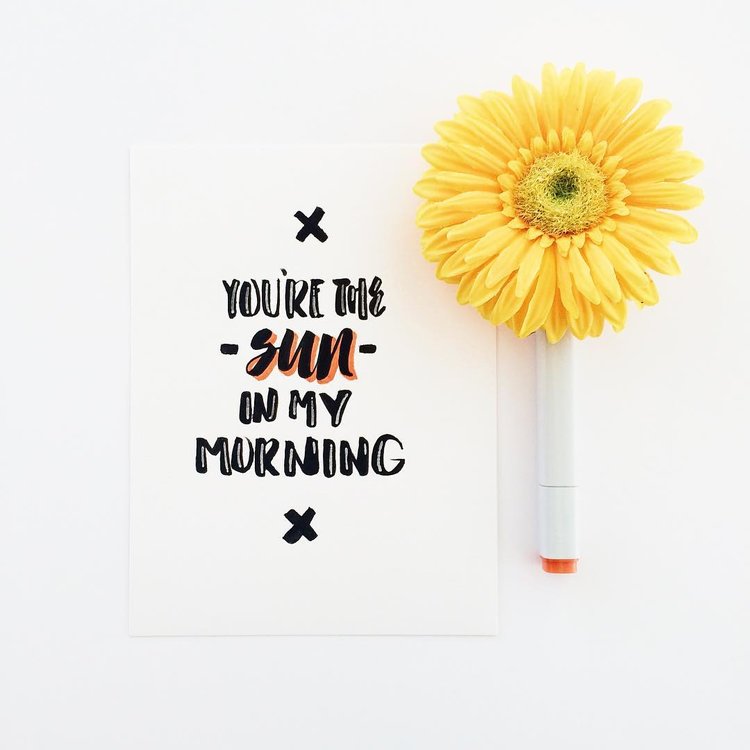 X
YOU'RE THE
- SUN -
IN MY
MORNING
X